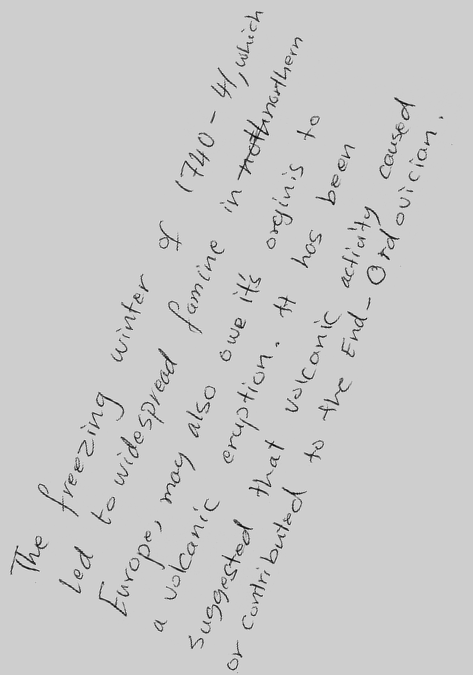 The freezing winter of 1740-41, which
led to widespread famine in northern
Europe, may also owe it's orginis to
a volcanic eruption. It has been
suggested that volcanic activity caused
or contributed to the End-Ordovician.